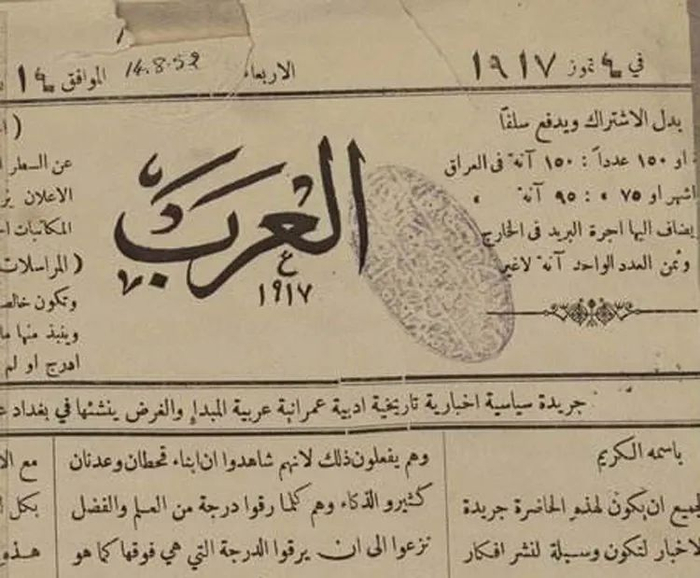 في ٤ تموز ١٩١٧
الاربعاء
14.8.52
الموافق ١٤
بدل الاشتراك ويدفع سلفًا
او ١٥٠ عدداً : ١٥٠ آنة فى العراق
اشهر او ٧٥ » : ٩٥ آنة »
يضاف اليها اجرة البريد فى الخارج
وثمن العدد الواحد آنة لاغير
العرب
١٩١٧
عن السعار
الاعلان
المكاتبات
( المراسلات
وتكون خالص
وينبذ منها ما
ادرج او لم
جريدة سياسية اخبارية تاريخية ادبية عمرانية عربية المبدإ والغرض ينشئها في بغداد
باسمه الكريم
لجميع ان يكون لهذه الحاضرة جريدة
لاخبار لتكون وسيلة لنشر افكار
وهم يفعلون ذلك لانهم شاهدوا ان ابناء قحطان وعدنان
كثيرو الذكاء وهم كلما رقوا درجة من العلم والفضل
نزعوا الى ان يرقوا الدرجة التي هي فوقها كما هو
مع
بكل
هذه